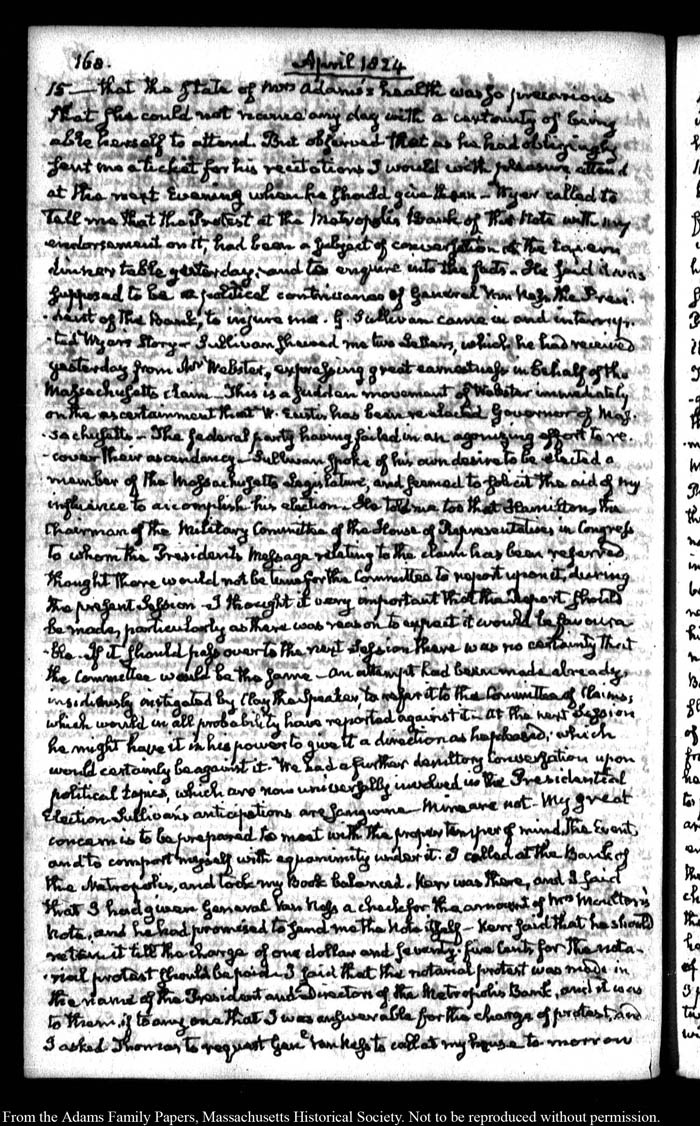 168.
April 1824
15 — that the state of Mrs Adams's health was so precarious
that she could not receive any day with a certainty of being
able herself to attend. But observed that as he had obligingly
sent me a ticket for his recitations I would with pleasure attend
at the next Evening when he should give them — Wyer called to
tell me that the Protest at the Metropolis Bank of this Note with my
endorsement on it, had been a subject of conversation at the tavern
dinner table yesterday; and to enquire into the facts. He said it was
supposed to be a political contrivance of General Van Ness the Presi-
-dent of the Bank, to injure me. G. Sullivan came in and interrup-
-ted Wyer's Story — Sullivan shewed me two Letters, which he had received
yesterday from Mr Webster, expressing great earnestness in behalf of the
Massachusetts claim — This is a sudden movement of Webster immediately
on the ascertainment that W. Eustis has been re-elected Governor of Mas-
-sachusetts — The federal party having failed in an agonizing effort to re-
-cover their ascendancy — Sullivan spoke of his own desire to be elected a
member of the Massachusetts Legislature, and seemed to solicit the aid of my
influence to accomplish his election — He told me too that Hamilton, the
Chairman of the Military Committee of the House of Representatives in Congress
to whom the Presidents Message relating to the claim has been referred,
thought there would not be time for the Committee to report upon it, during
the present Session — I thought it very important that the report should
be made, particularly as there was reason to expect it would be favoura-
-ble. If it should pass over to the next Session there was no certainty that
the Committee would be the same — An attempt had been made already,
insidiously instigated by Clay the Speaker, to refer it to the Committee of Claims;
which would in all probability have reported against it — At the next Session
he might have it in his power to give it a direction as he pleased; which
would certainly be against it. We had a further desultory conversation upon
political topics, which are now universally involved in the Presidential
Election — Sullivan's anticipations are sanguine — Mine are not — My great
concern is to be prepared to meet with the proper temper of mind the Event,
and to comport myself with equanimity under it. I called at the Bank of
the Metropolis, and took my Book balanced. Kerr was there, and I said
that I had given General Van Ness a check for the amount of Mrs Moulton's
Note, and he had promised to send me the Note itself — Kerr said that he should
retain it till the charge of one dollar and seventy-five Cents for the nota-
-rial protest should be paid — I said that the notarial protest was made in
the name of the President and Directors of the Metropolis Bank, and it was
to them, if to any one that I was answerable for the charge of protest, and
I asked Thomas to request Genl Van Ness to call at my house to-morrow
From the Adams Family Papers, Massachusetts Historical Society. Not to be reproduced without permission.